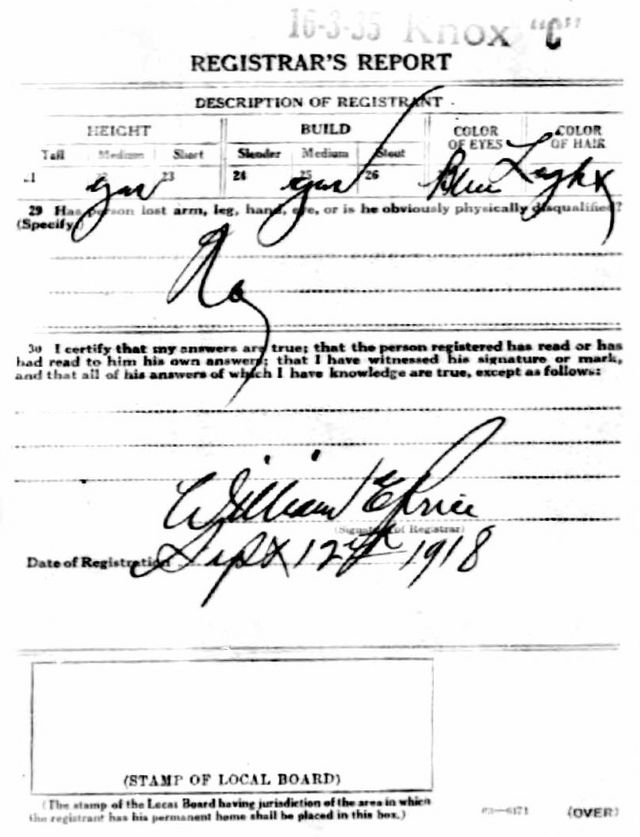 16-3-35 Knox "C"
REGISTRAR'S REPORT
DESCRIPTION OF REGISTRANT
HEIGHT BUILD COLOR OF EYES COLOR OF HAIR
Tall Medium Short Slender Medium Stout
21 22 yes 23 24 25 yes 26 Blue Light
29 Has person lost arm, leg, hand, eye, or is he obviously physically disqualified?
(Specify.)
No
30 I certify that my answers are true; that the person registered has read or has
had read to him his own answers; that I have witnessed his signature or mark,
and that all of his answers of which I have knowledge are true, except as follows:
William E Price
(Signature of Registrar)
Date of Registration Sept 12th 1918
(STAMP OF LOCAL BOARD)
(The stamp of the Local Board having jurisdiction of the area in which
the registrant has his permanent home shall be placed in this box.)
03—6171 (OVER)